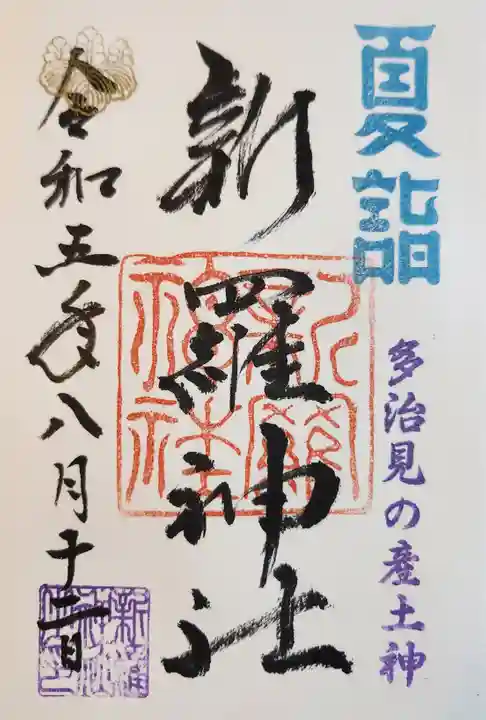 夏詣
多治見の産土神
新羅神社
令和五年八月十二日
新羅神社